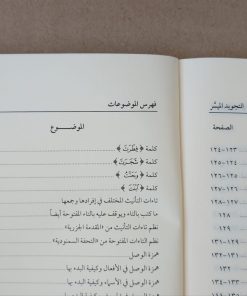 فهرس الموضوعات
الموضـــوع
كلمة ﴿ فِطْرَتَ ﴾
كلمة ﴿ شَجَرَتَ ﴾
كلمة ﴿ وَجَنَّتُ ﴾
كلمة ﴿ ٱبْنَتَ ﴾
تاءات التأنيث المختلف في إفرادها وجمعها
ما كتب بالتاء ويوقف عليه بالتاء المفتوحة أيضاً
نظم تاءات التأنيث من «المقدمة الجزرية»
نظم التاءات المفتوحة من «التحفة السمنودية»
همزة الوصل
همزة الوصل في الأفعال وكيفية البدء بها
همزة الوصل في الأسماء وكيفية البدء بها
التجويد الميسَّر
الصفحة
١٢٣–١٢٤
١٢٤–١٢٥
١٢٥–١٢٦
١٢٦–١٢٧
١٢٧–١٢٨
١٢٨
١٢٩
١٢٩–١٣١
١٣١–١٣٢
١٣٢
١٣٣–١٣٤